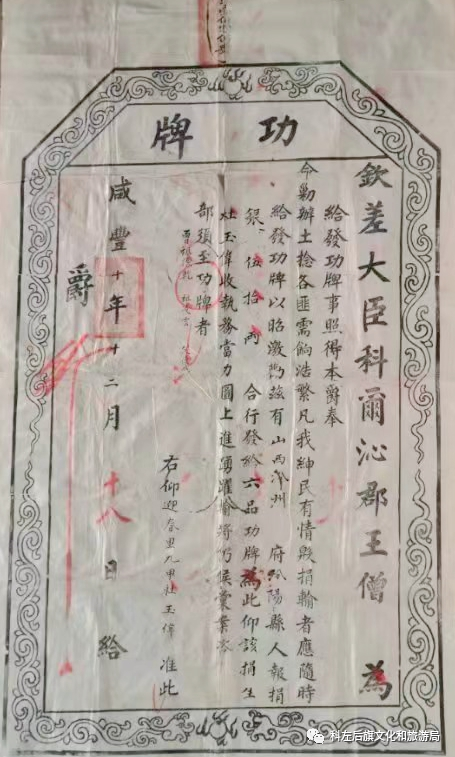 功牌
欽差大臣科爾沁郡王僧 為
給發功牌事照得本爵奉
令勦辦土捻各匪需餉浩繁凡我紳民有情殷捐輸者應隨時
給發功牌以昭激勸茲有山西 州 府汾陽縣人報捐
銀 伍拾兩 合行發給六品功牌為此仰該捐生
杜玉偉收執務當力圖上進踴躍 將仍候彙案
部須至功牌者
曾祖 祖 父
右仰迎春里九甲杜玉偉 准此
咸豐十年十二月十八日給
爵
科左后旗文化和旅游局